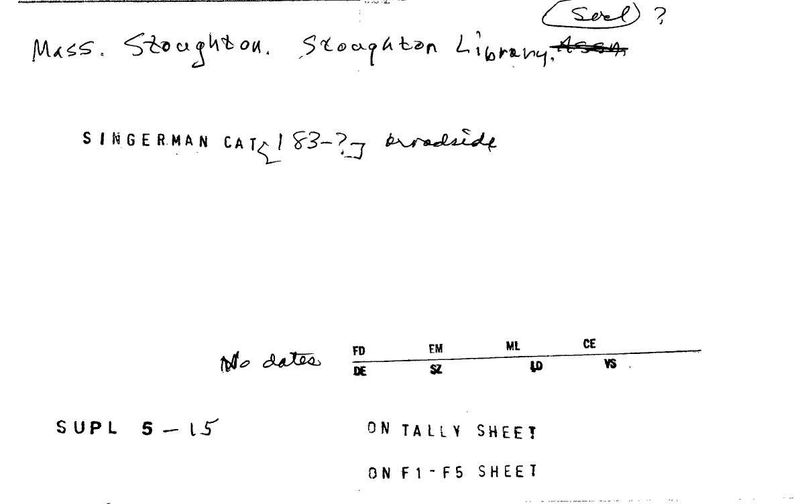 (Socl) ?
Mass. Stoughton. Stoughton Library. Assn
SINGERMAN CAT [183-?] broadside
No dates
FD EM ML CE
DE SZ LD VS
SUPL 5-15
ON TALLY SHEET
ON F1-F5 SHEET